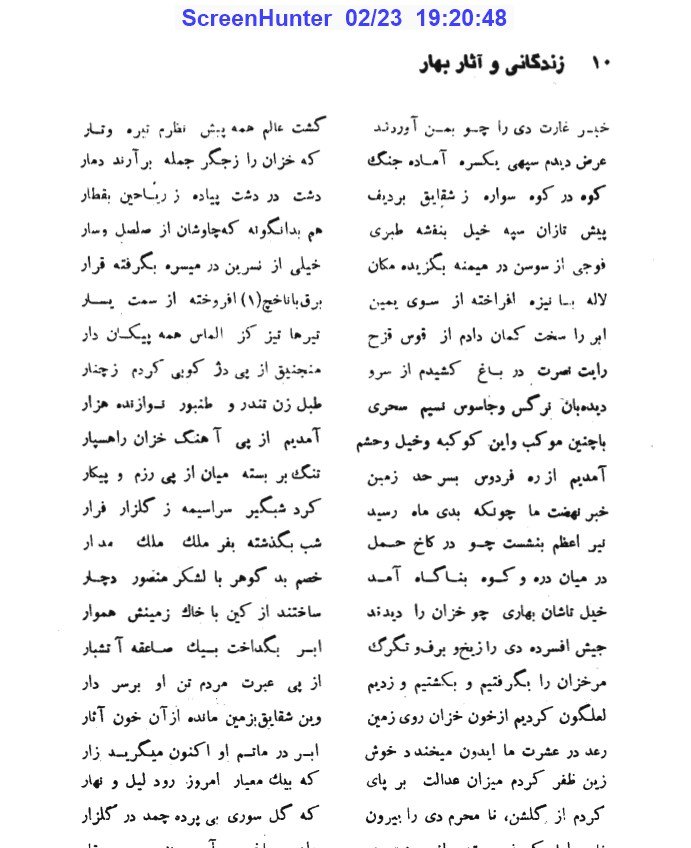 ScreenHunter 02/23 19:20:48
۱۰ زندگانی و آثار بهار
خبر غارت دی را چو بمن آوردند گشت عالم همه پیش نظرم تیره وتار
عرض دیدم سپهی یکسره آماده جنگ که خزان را زجگر جمله برآرند دمار
کوه در کوه سواره ز شقایق بردیف دشت در دشت پیاده ز ریاحین بقطار
پیش تازان سپه خیل بنفشه طبری هم بدانگونه که چاوشان از صلصل وسار
فوجی از سوسن در میمنه بگزیده مکان خیلی از نسرین در میسره بگرفته قرار
لاله با نیزه افراخته از سوی یمین برق باناخچ(۱) افروخته از سمت یسار
ابر را سخت کمان دادم از قوس قزح تیرها تیز کز الماس همه پیکان دار
رایت نصرت در باغ کشیدم از سرو منجنیق از پی دژ کوبی کردم زچنار
دیده‌بان نرگس وجاسوس نسیم سحری طبل زن تندر و طنبور نوازنده هزار
باچنین موکب واین کوکبه وخیل وحشم آمدیم از پی آهنگ خزان راهسپار
آمدیم ازره فردوس بسرحد زمین تنگ بر بسته میان از پی رزم و پیکار
خبر نهضت ما چونکه بدی ماه رسید کرد شبگیر سراسیمه ز گلزار فرار
نیر اعظم بنشست چو در کاخ حمل شب بگذشته بفر ملك ملك مدار
در میان دره و کوه بناگاه آمد خصم بد گوهر با لشکر منصور دچار
خیل تاشان بهاری چو خزان را دیدند ساختند از کین با خاك زمینش هموار
جیش افسرده دی را زیخ و برف و تگرگ ابر بگداخت بیك صاعقه آتشبار
مرخزان را بگرفتیم و بکشتیم و زدیم از پی عبرت مردم تن او برسر دار
لعلگون کردیم ازخون خزان روی زمین وین شقایق بزمین مانده ازآن خون آثار
رعد در عشرت ما ایدون میخندد خوش ابر در ماتم او اکنون میگرید زار
زین ظفر کردم میزان عدالت بر پای که بیك معیار امروز رود لیل و نهار
کردم از گلشن، نا محرم دی را بیرون که گل سوری بی پرده چمد در گلزار